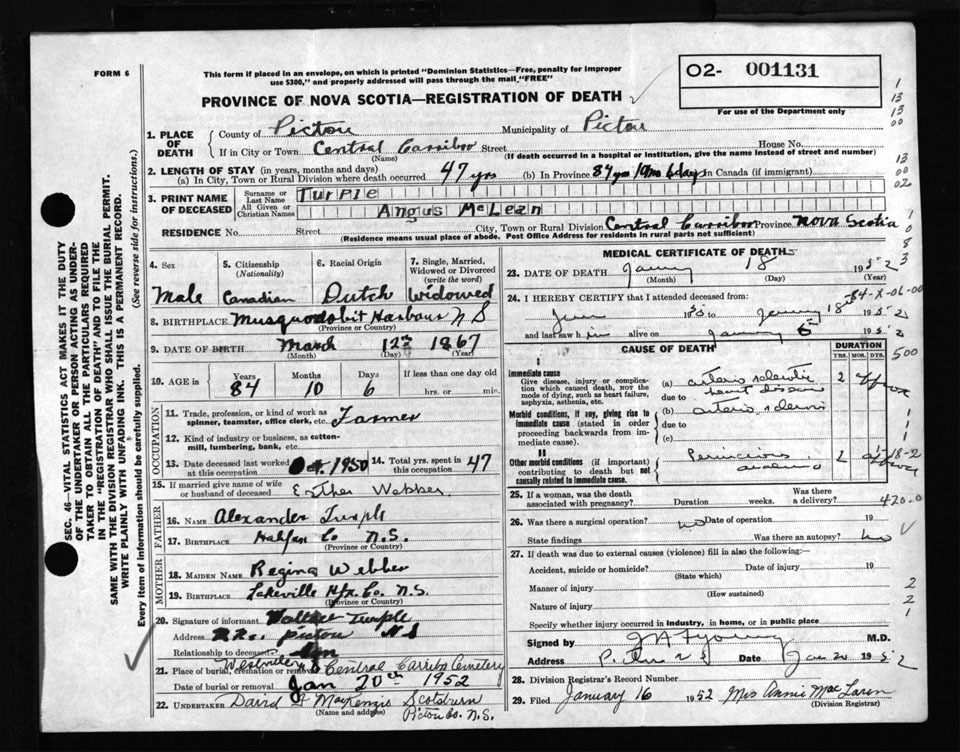 FORM 6
This form if placed in an envelope, on which is printed "Dominion Statistics—Free, penalty for improper
use $300," and properly addressed will pass through the mail "FREE"
O2- 001131
For use of the Department only
PROVINCE OF NOVA SCOTIA—REGISTRATION OF DEATH
1. PLACE OF DEATH
County of Pictou Municipality of Pictou
If in City or Town Central Carriboo Street House No.
(Name) (If death occurred in a hospital or institution, give the name instead of street and number)
2. LENGTH OF STAY (in years, months and days)
(a) In City, Town or Rural Division where death occurred 47 yrs (b) In Province 84 yrs 10 m 6 days in Canada (if immigrant)
3. PRINT NAME OF DECEASED
Surname or Last Name Turple
All Given or Christian Names Angus McLean
RESIDENCE No. Street City, Town or Rural Division Central Carriboo Province Nova Scotia
(Residence means usual place of abode. Post Office Address for residents in rural parts not sufficient)
4. Sex Male
5. Citizenship (Nationality) Canadian
6. Racial Origin Dutch
7. Single, Married, Widowed or Divorced (write the word) Widowed
8. BIRTHPLACE Musquodobit Harbour N S
(Province or Country)
9. DATE OF BIRTH March 12th 1867
(Month) (Day) (Year)
10. AGE in Years Months Days If less than one day old
84 10 6 hrs. or min.
OCCUPATION
11. Trade, profession, or kind of work as spinner, teamster, office clerk, etc. Farmer
12. Kind of industry or business, as cotton-mill, lumbering, bank, etc.
13. Date deceased last worked at this occupation Oct 1950 14. Total yrs. spent in this occupation 47
15. If married give name of wife or husband of deceased Esther Webber
FATHER
16. NAME Alexander Turple
17. BIRTHPLACE Halifax Co N.S.
(Province or Country)
MOTHER
18. MAIDEN NAME Regina Webber
19. BIRTHPLACE Lakeville Hfx. Co. N.S.
(Province or Country)
20. Signature of informant Turple
Address Pictou N S
Relationship to deceased Son
21. Place of burial, cremation or removal Central Carriboo Cemetery
Date of burial or removal Jan 20th 1952
22. UNDERTAKER David MacKenzie Scotsburn
(Name and address) Pictou Co. N.S.
MEDICAL CERTIFICATE OF DEATH
23. DATE OF DEATH 18 1952
(Month) (Day) (Year)
24. I HEREBY CERTIFY that I attended deceased from:
to 18 1952
and last saw him alive on 1952
CAUSE OF DEATH
DURATION
YRS. MOS. DYS.
Immediate cause
Give disease, injury or complication which caused death, NOT the mode of dying, such as heart failure, asphyxia, asthenia, etc.
(a) arterio sclerotic heart disease 2
due to
Morbid conditions, if any, giving rise to immediate cause (stated in order proceeding backwards from immediate cause).
(b) arterio sclerosis
due to
(c)
II
Other morbid conditions (if important) contributing to death but not causally related to immediate cause.
Pernicious
25. If a woman, was the death associated with pregnancy? Duration weeks. Was there a delivery?
26. Was there a surgical operation? no Date of operation 19
State findings Was there an autopsy? no
27. If death was due to external causes (violence) fill in also the following:—
Accident, suicide or homicide? Date of injury 19
(State which)
Manner of injury
(How sustained)
Nature of injury
Specify whether injury occurred in industry, in home, or in public place
Signed by Young M.D.
Address Date Jan 20 1952
28. Division Registrar's Record Number
29. Filed January 16 1952 Mrs Annie MacLaren
(Division Registrar)
SEC. 46—VITAL STATISTICS ACT MAKES IT THE DUTY
OF THE UNDERTAKER OR PERSON ACTING AS UNDER-
TAKER TO OBTAIN ALL THE PARTICULARS REQUIRED
IN THE "REGISTRATION OF DEATH" AND TO FILE THE
SAME WITH THE DIVISION REGISTRAR WHO SHALL ISSUE THE BURIAL PERMIT.
WRITE PLAINLY WITH UNFADING INK. THIS IS A PERMANENT RECORD.
Every item of information should be carefully supplied. (See reverse side for instructions.)